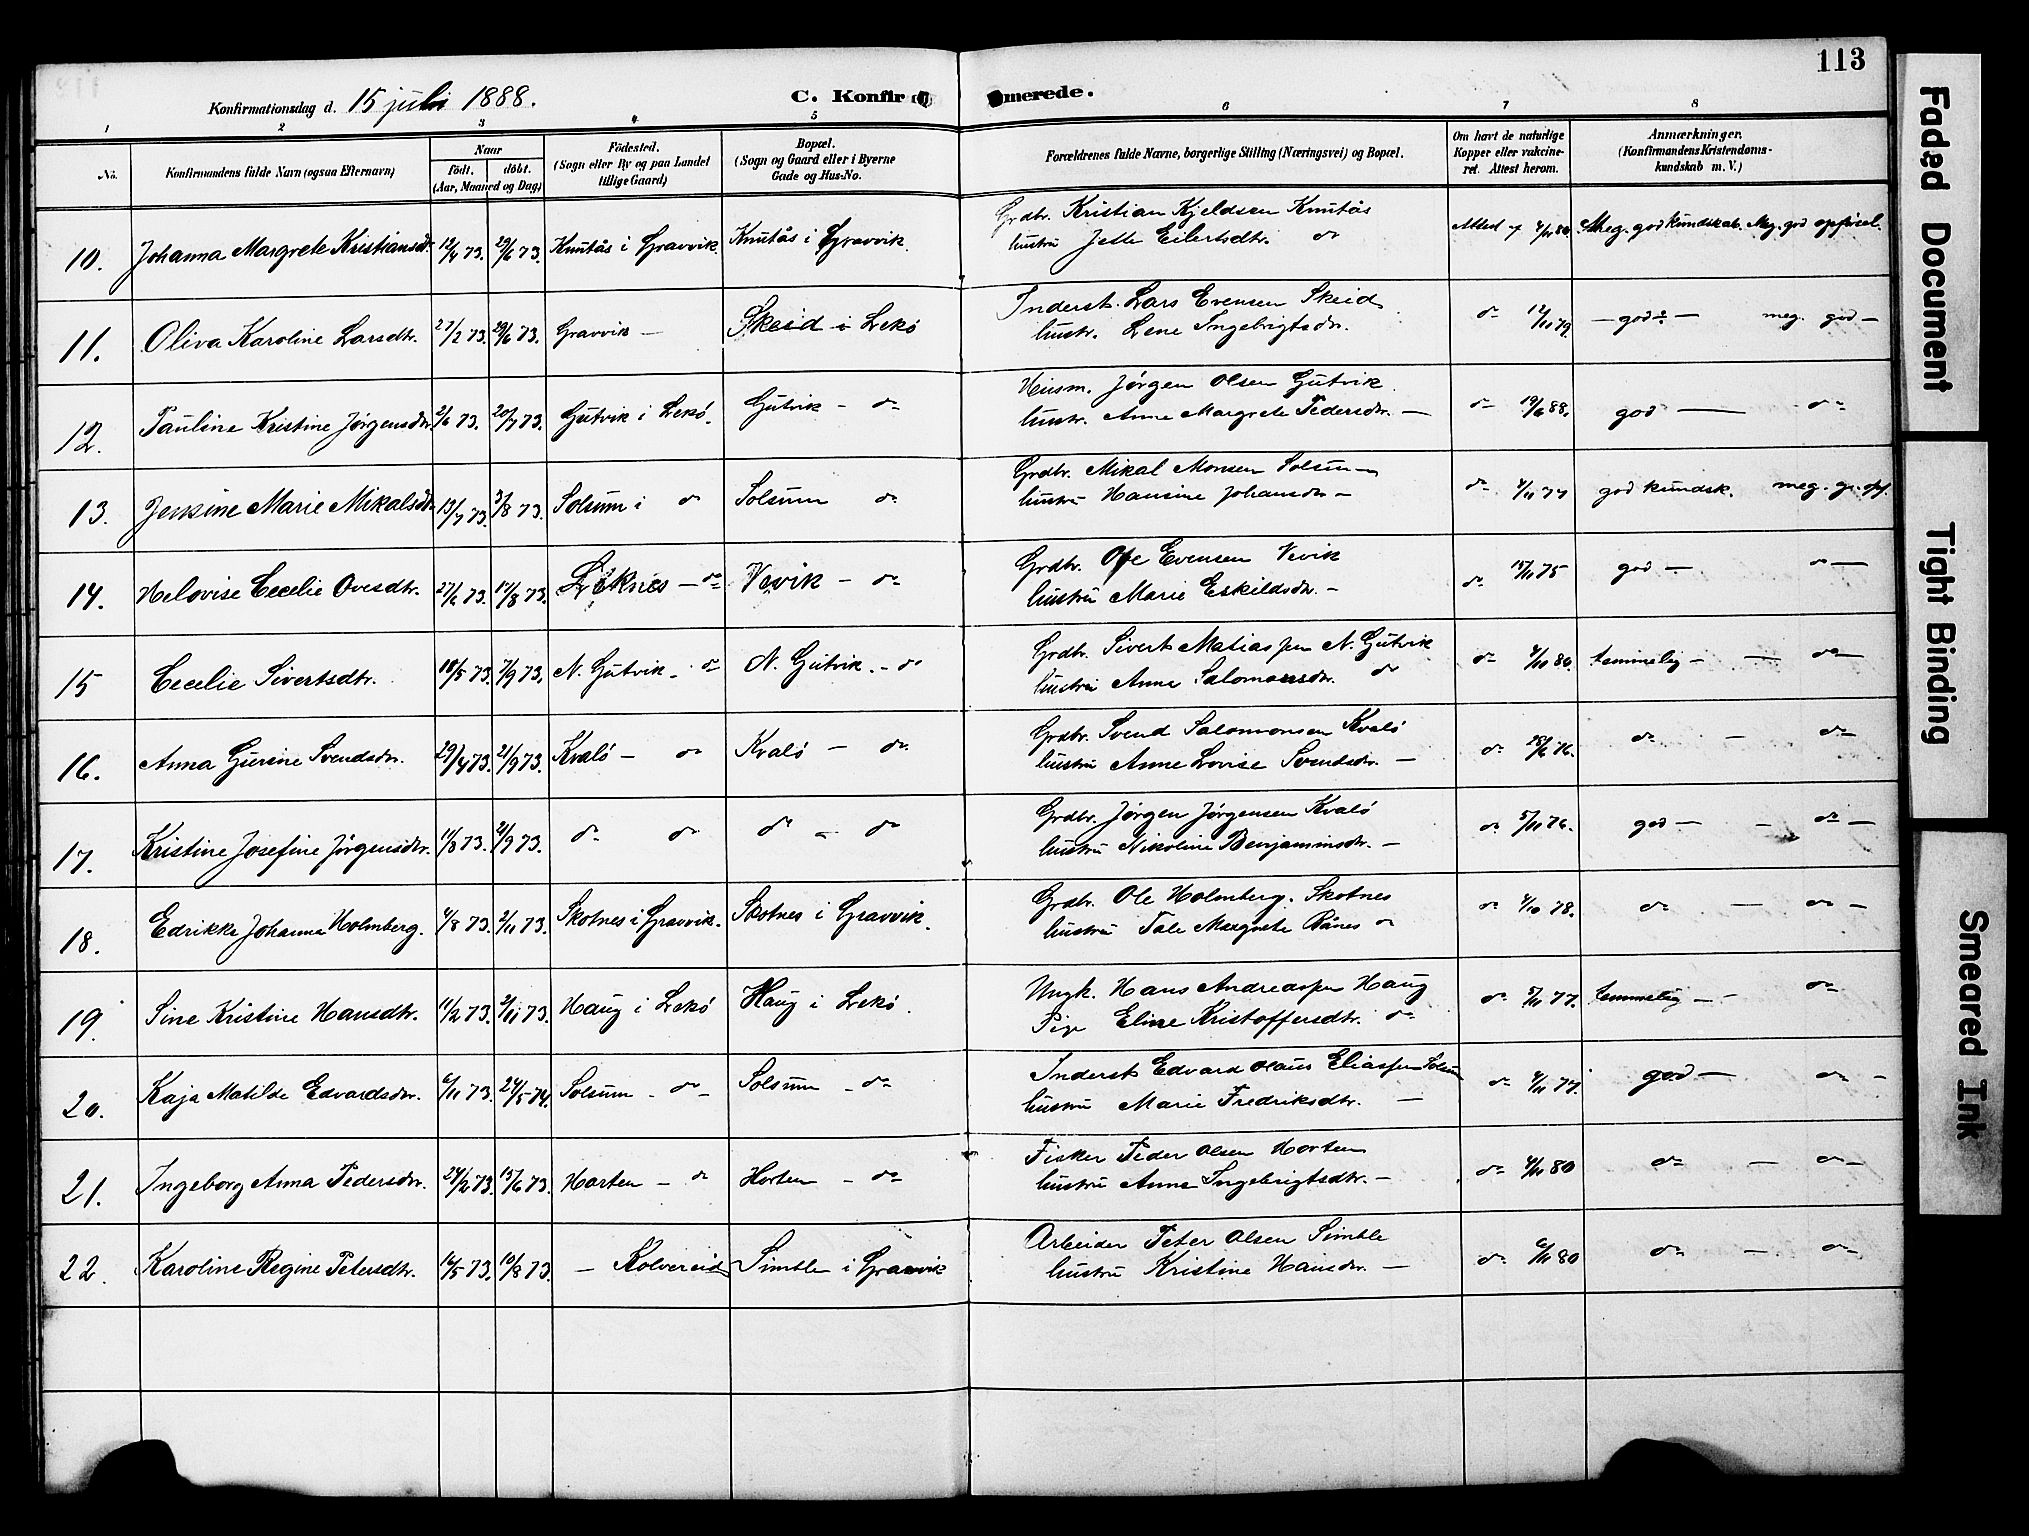 113
Konfirmationsdag d. 15 juli 1888. C. Konfirmerede.
1 2 3 4 5 6 7 8
No. Konfirmandens fulde Navn (ogsaa Efternavn) Naar født. døbt. (Aar, Maaned og Dag) Fødested. (Sogn eller By og paa Landet tillige Gaard) Bopæl. (Sogn og Gaard eller i Byerne Gade og Hus-No. Forældrenes fulde Navne, borgerlige Stilling (Næringsvei) og Bopæl. Om havt de naturlige Kopper eller vaccineret. Attest herom. Anmærkninger. (Konfirmandens Kristendomskundskab m. V.)
10. Johanna Margrete Kristiansdr. 12/4 73. 29/6 73. Knutås i Gravvik. Knutås i Gravvik. Grdbr. Kristian Kjeldsen Knutås Attest af 4/11 80. Meg. god kundskab. Meg. god opførsel.
hustru Jette Eilertsdtr. do
11. Oliva Karoline Larsdtr. 27/2 73. 29/6 73. Gravvik — Skeid i Lekø Inderst. Lars Evensen Skeid do 12/11 79. — god — meg. god —
hustr. Lene Ingebrigtsdr.
12. Pauline Kristine Jørgensdr. 2/6 73. 20/7 73. Gutvik i Lekø. Gutvik — do Husm. Jørgen Olsen Gutvik do 19/6 88. god — do
hustr. Anne Margrete Pedersdr. —
13. Jensine Marie Mikalsdr. 13/7 73. 3/8 73. Solsum i do Solsum do Grdbr. Mikal Monsen Solsum do 4/11 77 god kundsk. meg. g. opf.
hustru Hansine Johansdr —
14. Helovise Cecelie Ovesdtr. 27/6 73. 17/8 73. Leknes — do Vevik — do Grdbr. Ove Evensen Vevik do 15/11 75 god — do —
hustru Marie Eskildsdr. —
15 Cecelie Sivertsdtr. 18/5 73. 7/9 73. N. Gutvik. do N. Gutvik. — do Grdbr. Sivert Matiassen N. Gutvik do 4/11 80. temmelig — — do —
hustru Anna Salomonsdr. do
16. Anna Gurine Svendsdr. 29/4 73. 21/9 73. Kvalø — do Kvalø — do Grdbr. Svend Salomonsen Kvalø do 25/6 76. do — do
hustru Anne Lovise Svendsdr. —
17. Kristine Josefine Jørgensdr. 11/8 73. 21/9 73. do do do — do Grdbr. Jørgen Jørgensen Kvalø do 5/11 76. god — — do —
hustru Nikoline Benjaminsdr. —
18. Edrikke Johanna Holmberg. 4/8 73. 2/11 73. Skotnes i Gravvik. Skotnes i Gravvik. Grdbr. Ole Holmberg. Skotnes do 4/10 78. do — do —
hustru Tale Margrete Rånes do
19. Sine Kristine Hansdtr. 11/2 73. 2/11 73. Haug i Lekø Haug i Lekø. Ungk. Hans Andreassen Haug do 5/11 77. temmelig — — do
Pige Eline Kristoffersdtr. do
20. Kaja Matilde Edvardsdr. 6/11 73. 24/5 74. Solsum — do — Solsum — do Inderst Edvard Olaus Eliassen Solsum do 4/11 77. god — do —
hustru Marie Fredriksdtr. —
21. Ingeborg Anna Pedersdr. 24/2 73. 15/6 73. Horten — do Horten — do Fisker Peder Olsen Horten do 4/11 80 do — do —
hustru Anne Ingebrigtsdtr. —
22. Karoline Regine Petersdtr. 16/5 73. 10/8 73. — Kolvereid Simble i Gravvik Arbeider Peter Olsen Simble do 6/11 80 do — do —
hustru Kristine Hansdr. —
Faded Document
Tight Binding
Smeared Ink